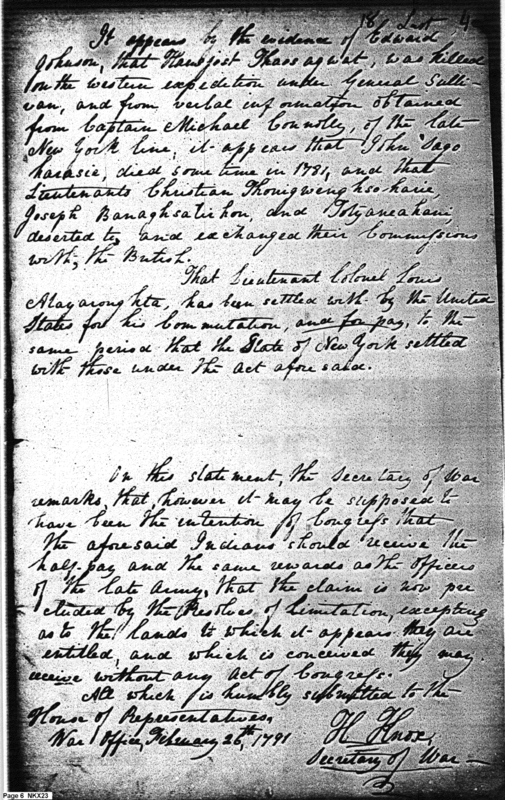 It appears by the evidence of Edward
Johnson, that Hansjost Thaosagwat, was killed
on the western expedition under General Sulli-
van, and from verbal information obtained
from Captain Michael Connolly, of the late
New York line, it appears that John Sago
harasie, died some time in 1781, and that
Lieutenants Christian Thonigwenghsoharie,
Joseph Banaghsatirhon, and Totyaneahani,
deserted to, and exchanged their Commissions
with, the British.
That Lieutenant Colonel Louis
Atayaroughta, has been settled with by the United
States for his Commutation, and for pay, to the
same period that the State of New York settled
with those under the act aforesaid.
On this statement, the Secretary of War
remarks, that, however it may be supposed to
have been the intention of Congress that
the aforesaid Indians should receive the
half-pay and the same rewards as the Officers
of the late Army, that the claim is now pre
cluded by the Resolves of Limitation, excepting
as to the lands to which it appears they are
entitled, and which is conceived they may
receive without any act of Congress.
All which is humbly submitted to the
House of Representatives,
War Office, February 26th, 1791
H Knox,
Secretary of War
Page 6 NKX23